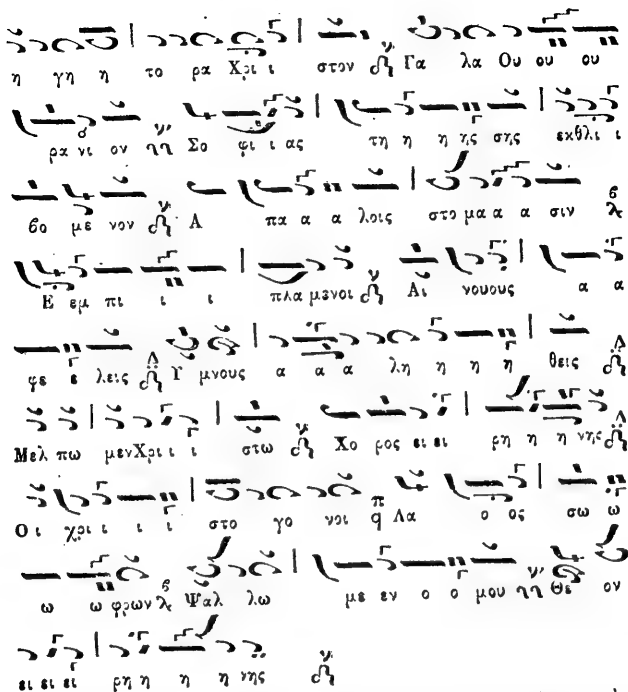 η γη η το ρα Χρι ι στον Γα λα Ου ου ου
ρα νι ον Σο φι ι ας τη η ης σης εκθλι ι
βο με νον Α πα α α λοις στο μα α α σιν
Ε εμ πι ι ι πλα μενοι Αι νουους α α
φε ε λεις Υ μνους α α α λη η η η θεις
Μελ πω μεν Χρι ι ι στω Χο ρος ει ει ρη η η νης
Οι χρι ι ι ι στο γο νοι Λα ο ος σω ω
ω ω φρων Ψαλ λω με εν ο ο μου Θε ον
ει ει ει ρη η η η νης